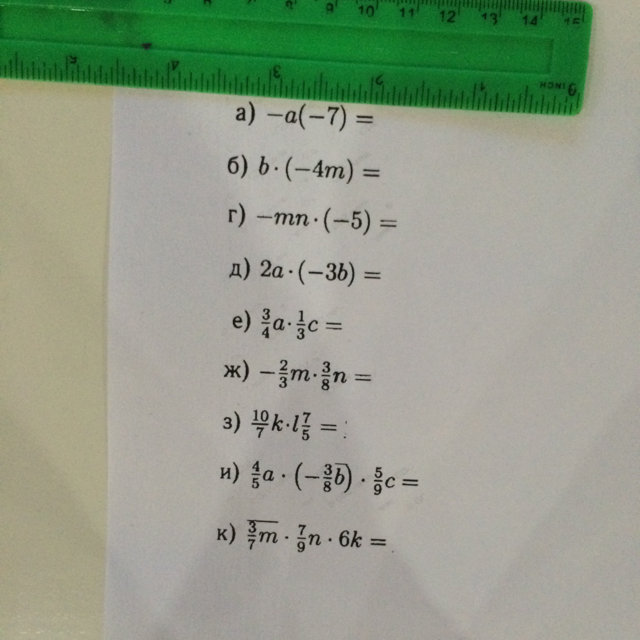 8 9 10 11 12 13 14 15
5 4 3 2 1 INCH
а) −a(−7) =
б) b·(−4m) =
г) −mn·(−5) =
д) 2a·(−3b) =
е) 3/4 a·1/3 c =
ж) −2/3 m·3/8 n =
з) 10/7 k·l 7/5 =
и) 4/5 a · (−3/8 b) · 5/9 c =
к) 3/7 m · 7/9 n · 6k =